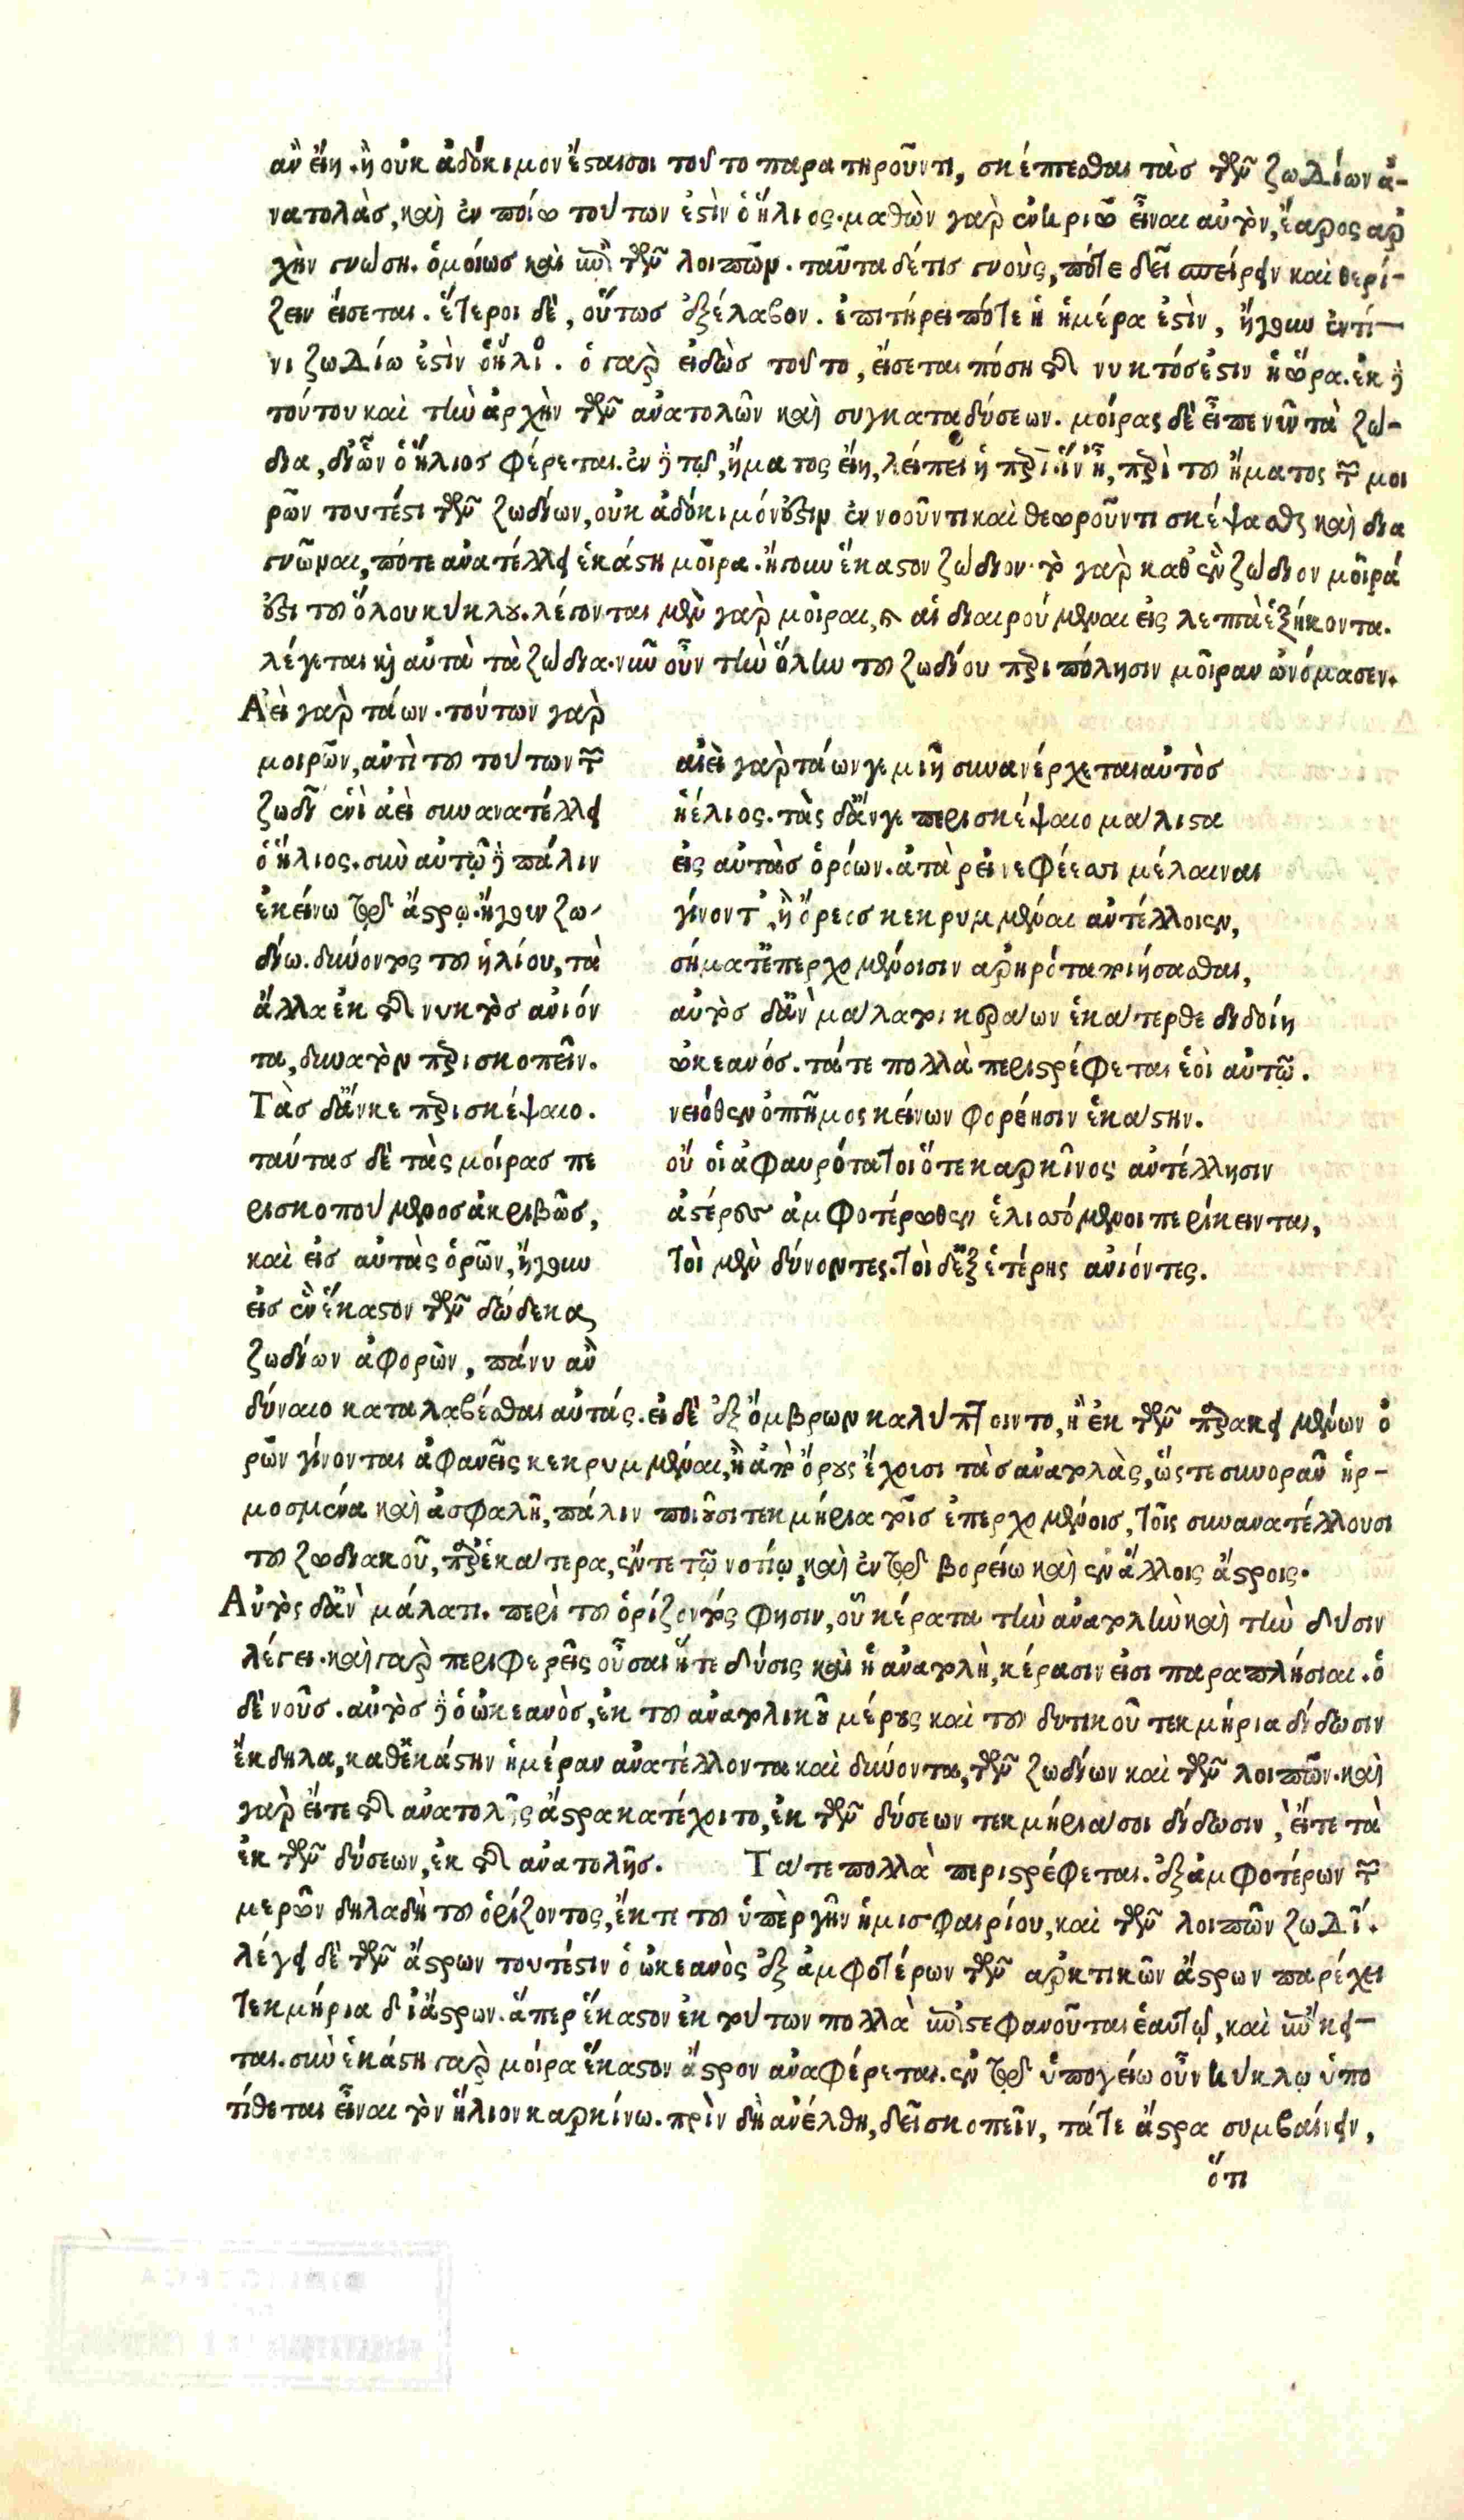 ἂν εἴη. ἢ οὐκ ἀδόκιμον ἔσται σοι τοῦτο παρατηροῦντι, σκέπτεσθαι τὰς τῶν ζωδίων ἀ-
νατολὰς, καὶ ἐν ποίῳ τούτων ἐστὶν ὁ ἥλιος. μαθὼν γὰρ ἐν κριῷ εἶναι αὐτὸν, ἔαρος ἀρ
χὴν γνώσῃ. ὁμοίως καὶ ἐπὶ τῶν λοιπῶν. ταῦτα δέ τις γνοὺς, πότε δεῖ σπείρειν καὶ θερί-
ζειν εἴσεται. ἕτεροι δὲ, οὕτως ἐξέλαβον. ἐπιτήρει πότε ἡ ἡμέρα ἐστὶν, ἤγουν ἐν τί-
νι ζωδίω ἐστὶν ὁ ἥλιος. ὁ γὰρ εἰδὼς τοῦτο, εἴσεται πόση τῆς νυκτός ἐστιν ἡ ὥρα. ἐκ δὲ
τούτου καὶ τὴν ἀρχὴν τῶν ἀνατολῶν καὶ συγκαταδύσεων. μοίρας δὲ εἶπε νῦν τὰ ζώ-
δια, δι' ὧν ὁ ἥλιος φέρεται. ἐν δὲ τῷ, ἤματος εἴη, λείπει ἡ περὶ. ἵν' ᾖ, περὶ τοῦ ἤματος τῶν μοι
ρῶν τουτέστι τῶν ζωδίων, οὐκ ἀδόκιμόν ἐστιν ἐννοοῦντι καὶ θεωροῦντι σκέψασθαι καὶ δια
γνῶναι, πότε ἀνατέλλει ἑκάστη μοῖρα. ἤγουν ἕκαστον ζώδιον. τὸ γὰρ καθ' ἓν ζώδιον μοῖρά
ἐστι τοῦ ὅλου κύκλου. λέγονται μὲν γὰρ μοῖραι, καὶ αἱ διαιρούμεναι εἰς λεπτὰ ἑξήκοντα.
λέγεται καὶ αὐτὰ τὰ ζώδια. νῦν οὖν τὴν ὅλην τοῦ ζωδίου περιπόλησιν μοῖραν ὠνόμασεν.
Ἀεὶ γὰρ τάων. τούτων γὰρ
μοιρῶν, ἀντὶ τοῦ τούτων τῶν
ζωδ ἑνὶ ἀεὶ συνανατέλλει
ὁ ἥλιος. σὺν αὐτῷ δὲ πάλιν
ἐκείνω τῷ ἄστρῳ. ἤγουν ζω
δίω. δύνοντος τοῦ ἡλίου, τὰ
ἄλλα ἐκ τῆς νυκτὸς ἀνιόν
τα, δυνατὸν περισκοπεῖν.
Τὰς δ' ἄν κε περισκέψαιο.
ταύτας δὲ τὰς μοίρας πε
ρισκοπούμενος ἀκριβῶς,
καὶ εἰς αὐτὰς ὁρῶν, ἤγουν
εἰς ἓν ἕκαστον τῶν δώδεκα
ζωδίων ἀφορῶν, πάνυ ἂν
αἰεὶ γὰρ τάων γε μιῇ συνανέρχεται αὐτὸς
ἠέλιος. τὰς δ' ἄν γε περισκέψαιο μάλιστα
εἰς αὐτὰς ὁρόων. ἀτὰρ εἰ νεφέεσσι μέλαιναι
γίνοντ', ἢ ὄρεος κεκρυμμέναι ἀντέλλοιεν,
σήματ' ἐπερχομένοισιν ἀρηρότα ποιήσασθαι,
αὐτὸς δ' ἂν μάλα τοι κεράων ἑκάτερθε διδοίη
ὠκεανός. τά τε πολλὰ περιστρέφεται ἑοῖ αὐτῷ.
νειόθεν ὁππῆμος κείνων φορέησιν ἑκάστην.
οὔ οἱ ἀφαυρότατοι ὅτε καρκῖνος ἀντέλλησιν
ἀστέρες ἀμφοτέρωθεν ἑλισσόμενοι περίκεινται,
τοὶ μὲν δύνοντες. τοὶ δ' ἐξ ἑτέρης ἀνιόντες.
δύναιο καταλαβέσθαι αὐτάς. εἰ δὲ ἐξ ὄμβρων καλύπτοιντο, ἢ ἐκ τῶν παρακειμένων ὀ
ρῶν γίνονται ἀφανεῖς κεκρυμμέναι, ἢ ἀπὸ ὄρους ἔχοισι τὰς ἀνατολὰς, ὥστε συνορᾶν ἡρ-
μοσμένα καὶ ἀσφαλῆ, πάλιν ποιοῦσι τεκμήρια τοῖς ἐπερχομένοις, τοῖς συνανατέλλουσι
τοῦ ζωδιακοῦ, παρ' ἑκάτερα, ἔν τε τῷ νοτίῳ, καὶ ἐν τῷ βορείω καὶ ἐν ἄλλοις ἄστροις.
Αὐτὸς δ' ἂν μάλα τι. περὶ τοῦ ὁρίζοντός φησιν, οὗ κέρατα τὴν ἀνατολὴν καὶ τὴν δύσιν
λέγει. καὶ γὰρ περιφερεῖς οὖσαι ἥτε δύσις καὶ ἡ ἀνατολὴ, κέρασιν εἰσι παραπλήσιαι. ὁ
δὲ νοῦς. αὐτὸς δὲ ὁ ὠκεανὸς, ἐκ τοῦ ἀνατολικοῦ μέρους καὶ τοῦ δυτικοῦ τεκμήρια δίδωσιν
ἔκδηλα, καθ' ἑκάστην ἡμέραν ἀνατέλλοντα καὶ δύνοντα, τῶν ζωδίων καὶ τῶν λοιπῶν. καὶ
γὰρ εἴτε τῆς ἀνατολῆς ἄστρα κατέχοιτο, ἐκ τῶν δύσεων τεκμήριά σοι δίδωσιν, εἴτε τὰ
ἐκ τῶν δύσεων, ἐκ τῆς ἀνατολῆς. Τά τε πολλὰ περιστρέφεται. ἐξ ἀμφοτέρων τῶν
μερῶν δηλαδὴ τοῦ ὁρίζοντος, ἔκ τε τοῦ ὑπὲρ γῆν ἡμισφαιρίου, καὶ τῶν λοιπῶν ζωδί.
λέγει δὲ τῶν ἄστρων τουτέστιν ὁ ὠκεανὸς ἐξ ἀμφοτέρων τῶν ἀρκτικῶν ἄστρων παρέχει
τεκμήρια δι' ἄστρων. ἅπερ ἕκαστον ἐκ τούτων πολλὰ ἐπιστεφανοῦται ἑαυτῷ, καὶ ἐπίκει-
ται. σὺν ἑκάστη γὰρ μοίρα ἕκαστον ἄστρον ἀναφέρεται. ἐν τῷ ὑπογείω οὖν κύκλῳ ὑπο
τίθεται εἶναι τὸν ἥλιον καρκίνω. πρὶν δὴ ἀνέλθη, δεῖ σκοπεῖν, τά τε ἄστρα συμβαίνειν,
ὅτι